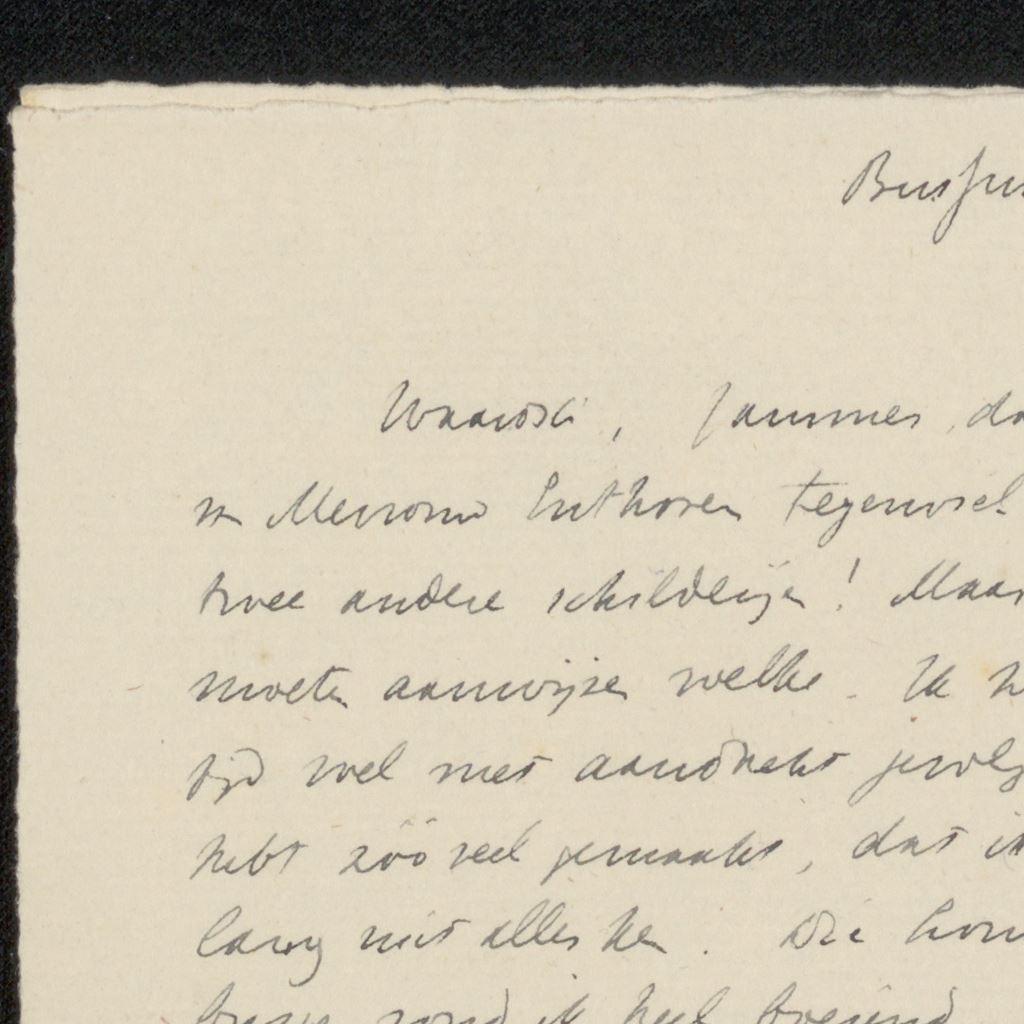 Bussum
Waarde, Jammer, da
n Mevrouw Enthoven tegenwoel
twee andere schilderijen! Maar
moeten aanwijzen welke. Ik h
tijd wel met aandacht gevolg
hebt zóó veel gemaakt, dat ik
lang niet alles ken. Die
vond ik heel boeiend